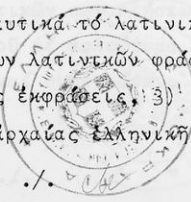 αυτικά τό λατινικ
ων λατινικῶν φράσ
ς ἐκφράσεις, 3)
αρχαίας ἑλληνικῆ
./.